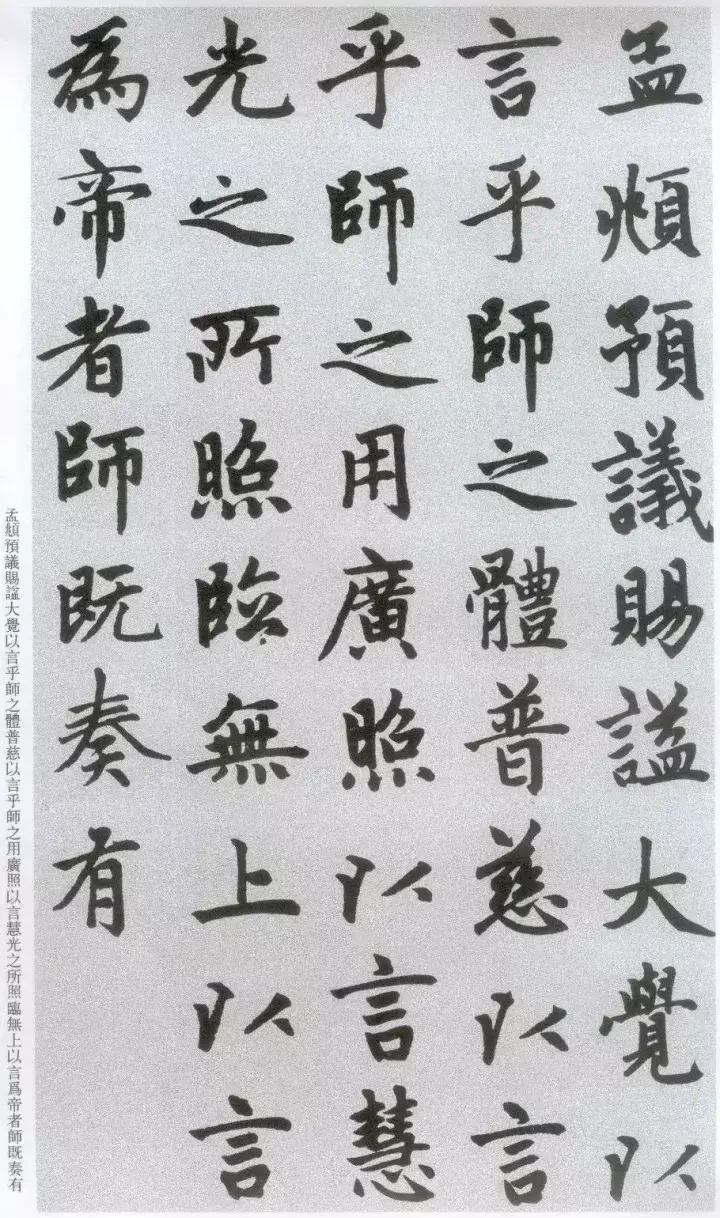 孟頫預議賜謚大覺以
言乎師之體普慈以言
乎師之用廣照以言慧
光之所照臨無上以言
為帝者師既奏有
孟頫預議賜謚大覺以言乎師之體普慈以言乎師之用廣照以言慧光之所照臨無上以言爲帝者師既奏有